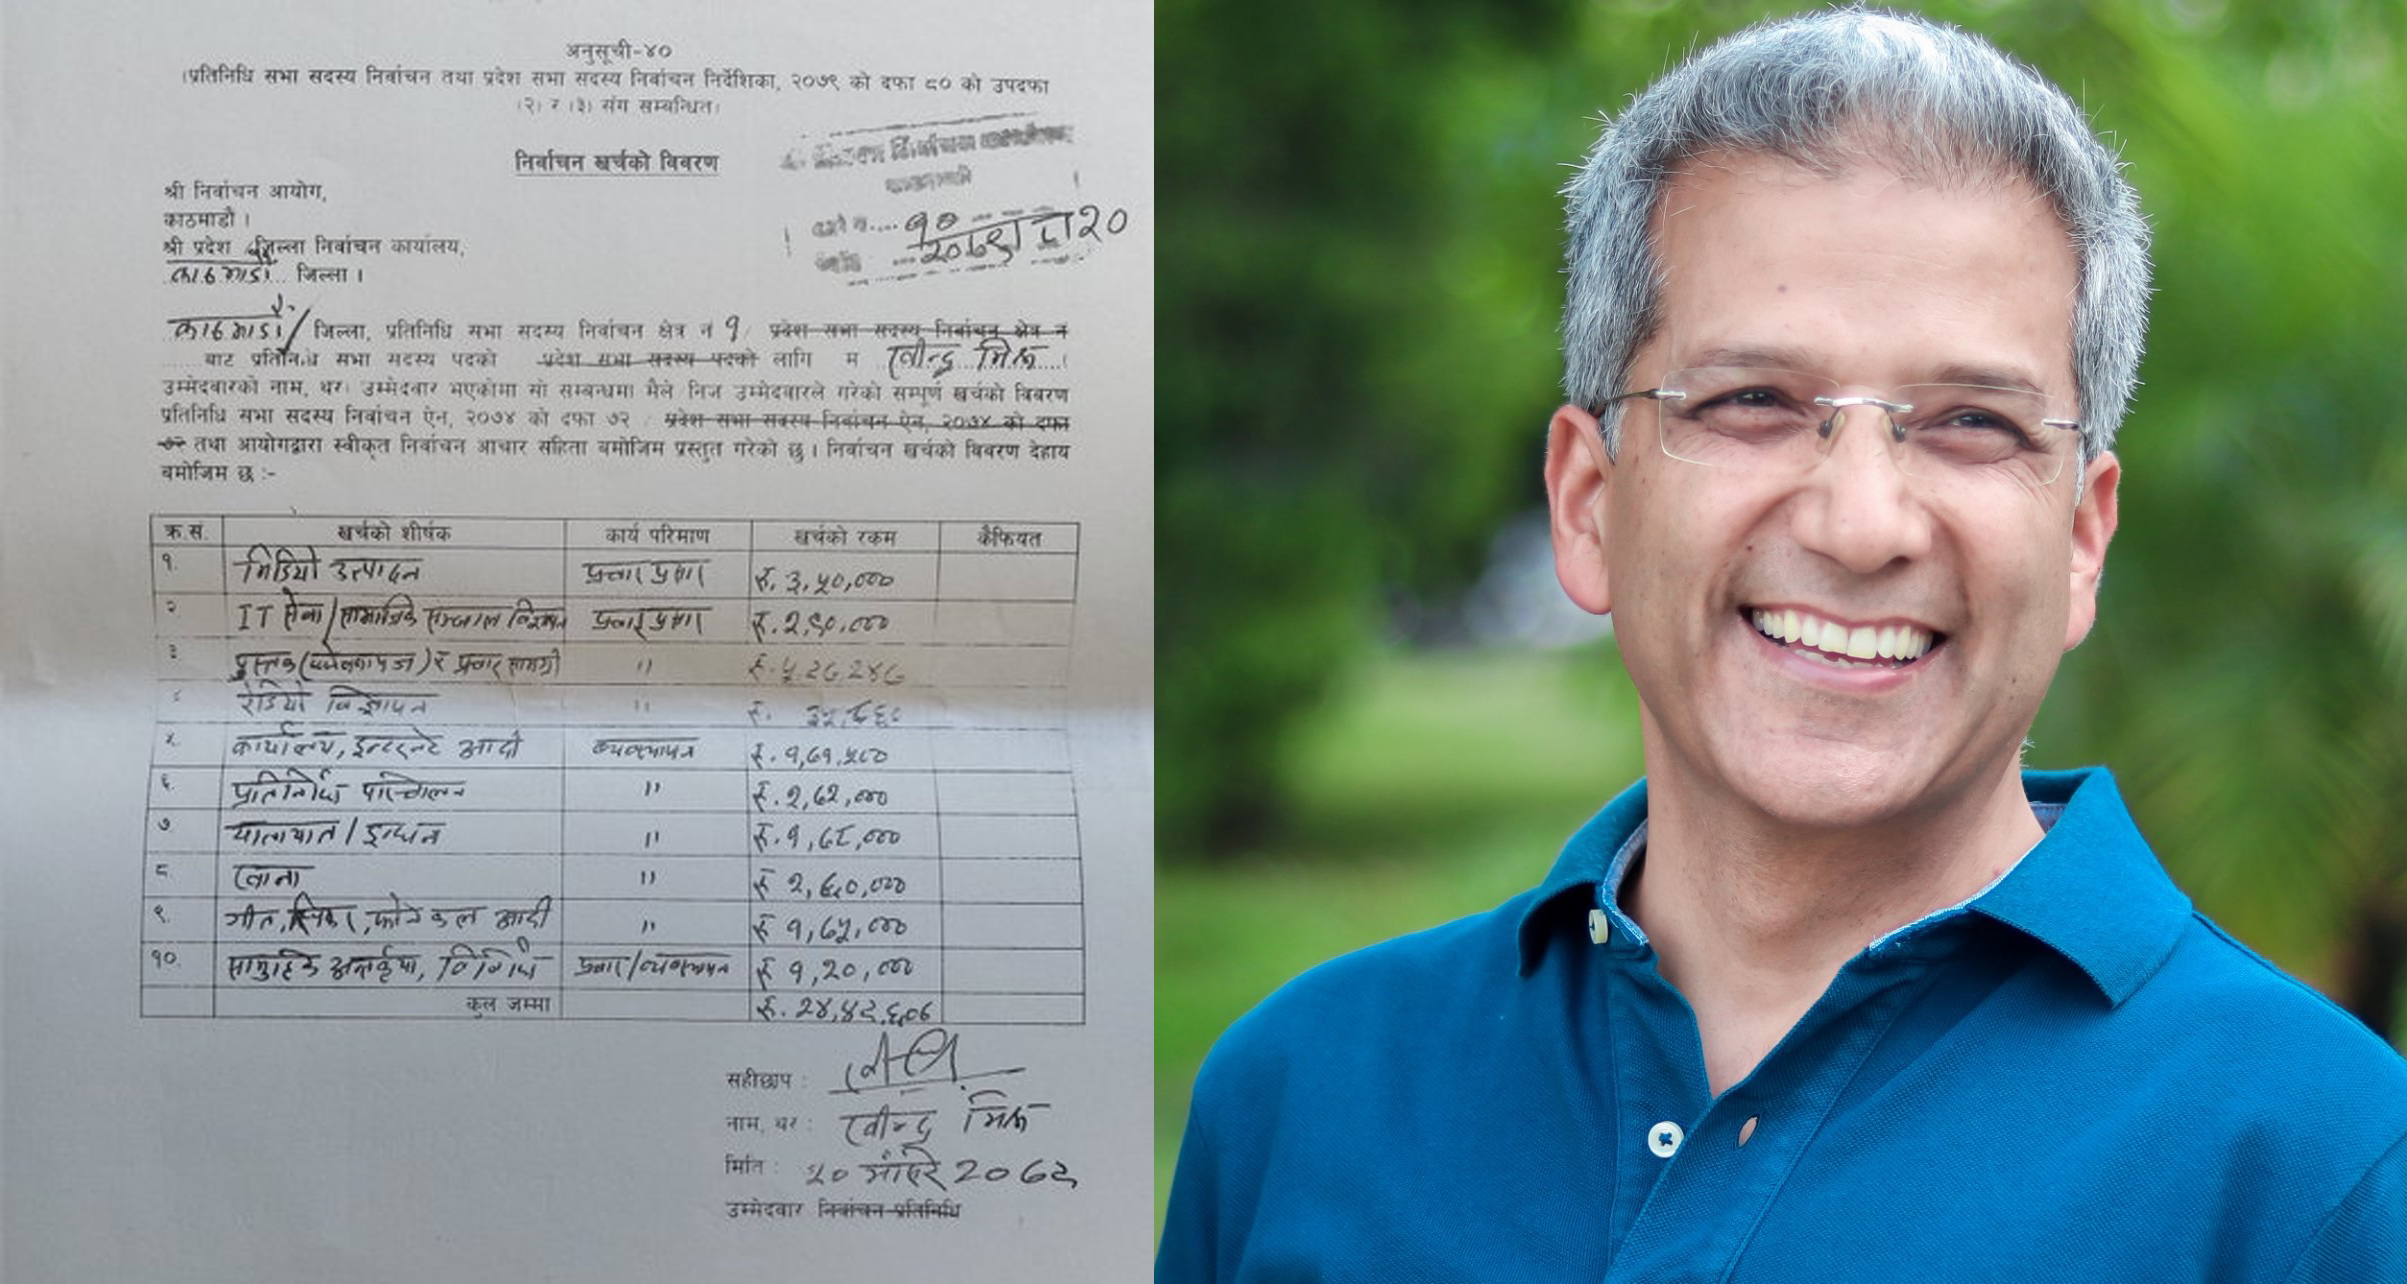 अनुसूची-४०
(प्रतिनिधि सभा सदस्य निर्वाचन तथा प्रदेश सभा सदस्य निर्वाचन निर्देशिका, २०७९ को दफा ८० को उपदफा
(२) र (३) संग सम्बन्धित)
निर्वाचन खर्चको विवरण
निर्वाचन
श्री निर्वाचन आयोग,
काठमाडौं ।
श्री प्रदेश जिल्ला निर्वाचन कार्यालय,
काठमाडौं जिल्ला ।
काठमाडौं जिल्ला, प्रतिनिधि सभा सदस्य निर्वाचन क्षेत्र नं १/ प्रदेश सभा सदस्य निर्वाचन क्षेत्र नं
..... बाट प्रतिनिधि सभा सदस्य पदको प्रदेश सभा सदस्य पदको लागि म रवीन्द्र मिश्र.....(
उम्मेदवारको नाम, थर) उम्मेदवार भएकोमा सो सम्बन्धमा मैले/निज उम्मेदवारले गरेको सम्पूर्ण खर्चको विवरण
प्रतिनिधि सभा सदस्य निर्वाचन ऐन, २०७४ को दफा ७२ / प्रदेश सभा सदस्य निर्वाचन ऐन, २०७४ को दफा
७२ तथा आयोगद्वारा स्वीकृत निर्वाचन आचार संहिता बमोजिम प्रस्तुत गरेको छु । निर्वाचन खर्चको विवरण देहाय
बमोजिम छ :-
क्र.सं. खर्चको शीर्षक कार्य परिमाण खर्चको रकम कैफियत
१. भिडियो उत्पादन प्रचार प्रसार रु. ३,५०,०००
२ IT सेवा/सामाजिक सञ्जाल विज्ञापन प्रचार प्रसार रु. २,९०,०००
३ पुस्तक ( ) र प्रचार सामग्री " रु. ५,२७,२४७
४ रेडियो विज्ञापन " रु.
५. कार्यालय, इन्टरनेट आदी व्यवस्थापन रु. १,७१,५००
६. प्रतिनिधि परिचालन " रु. २,७२,०००
७ यातायात/इन्धन " रु. १,७८,०००
८ खाना " रु २,६०,०००
९. गीत, स्टिकर, फोन कल आदी " रु १,७५,०००
१०. सामुहिक अन्तर्क्रिया, विविध प्रचार/व्यवस्थापन रु १,२०,०००
कुल जम्मा रु. २४,४९,६०७
सहीछाप :
नाम, थर : रवीन्द्र मिश्र
मिति : २० मंसिर २०७९
उम्मेदवार निर्वाचन प्रतिनिधि